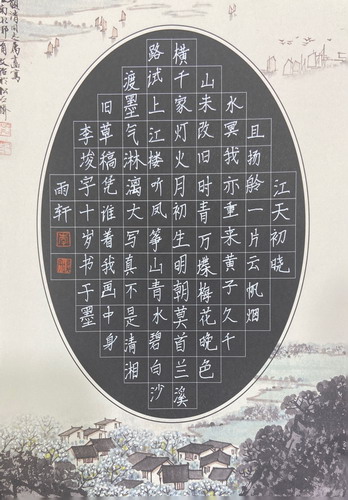 江天初晓
且扬舲一片云帆烟
水冥我亦重来黄子久千
山未改旧时青万梅花晚色
横千家灯火月初生明朝莫首兰溪
路试上江楼听凤筝山青水碧白沙
渡墨气淋漓大写真不是清湘
旧草稿凭谁着我画中身
李埈字十岁书于墨
雨轩